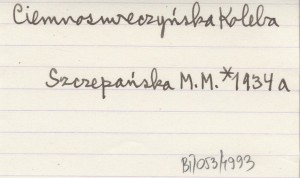 Ciemnosmreczyńska Koleba
Szczepańska M.M. *1934a
Bi/053/4993